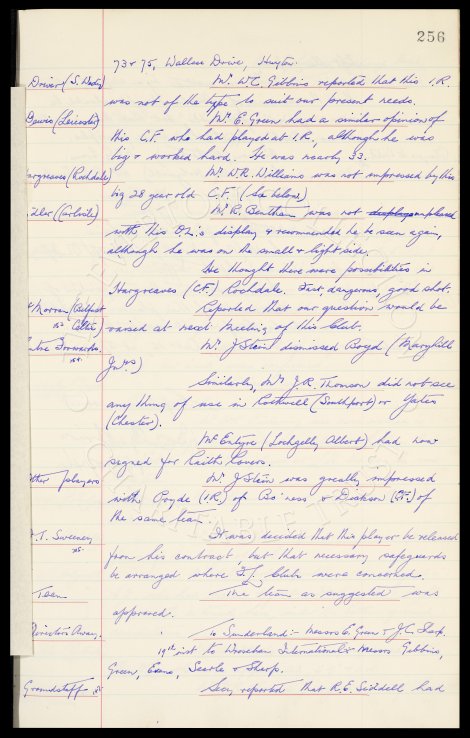 256
73 & 75, Wallace Drive, Huyton.
Driver (S. Dndy) Mr. W.C. Gibbins reported that this I.R.
was not of the type to suit our present needs.
Davis (Leicester) Mr. E. Green had a similar opinion of
this C.F. who had played at I.R., although he was
big & worked hard. He was nearly 33.
argreaves (Rochdale) Mr. W.R. Williams was not impressed by this
big 28 year old C.F. (See below)
dler (Carlisle) Mr. R. Bentham was not displeased
with this O.L's display & recommended he be seen again,
although he was on the small & light side.
He thought there were possibilities in
Hargreaves (C.F.) Rochdale. Fast, dangerous, good shot.
Morran (Belfast Celtic) Reported that our question would be
raised at next meeting of this Club.
tre Forwards. Mr. J Stein dismissed Boyd (Maryhill
Jnrs)
Similarly, Mr J.R. Thomson did not see
any thing of use in Rothwell (Southport) or Yates
(Chester).
McEntyre (Lochgelly Albert) had now
signed for Raith Rovers.
ther players Mr. J Stein was greatly impressed
with (I.R.) of Bo'ness & Dickson of
the same team.
T. Sweeney It was decided that this player be released
from his contract but that necessary safeguards
be arranged where F.L. Clubs were concerned.
Team The team as suggested was
approved.
Directors Away. To Sunderland:- Messrs E. Green & J.C. Sharp.
19th inst to Wrexham International:- Messrs Gibbins,
Green, Evans, Searle & Sharp.
Groundstaff Secy reported that R.E. Siddell had